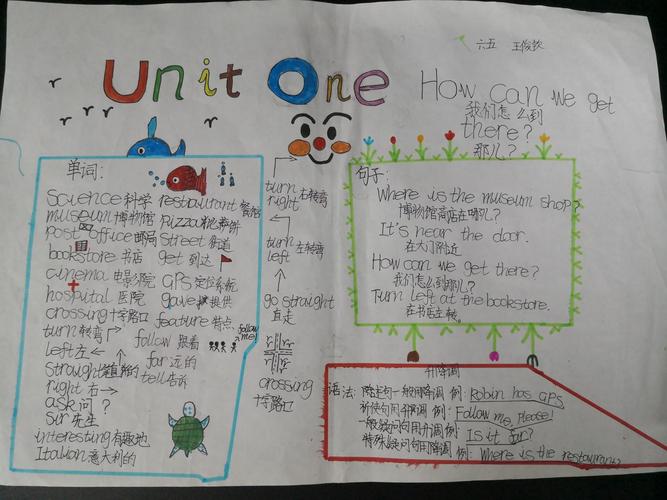 六五 王俊钦
Unit One How can we get
我们怎么到
there?
那儿?
单词:
science 科学 restaurant 餐馆
museum 博物馆 pizza 比萨饼
post office 邮局 street 街道
bookstore 书店 get 到达
cinema 电影院 GPS 定位系统
hospital 医院 gave 提供
crossing 十字路口 feature 特点
turn 转弯 follow 跟着 follow me!
left 左 far 远的
straight 笔直的 tell 告诉
right 右
ask 问?
sir 先生
interesting 有趣地
Italian 意大利的
turn right 右转弯
turn left 左转弯
go straight
直走
crossing
十字路口
句子:
Where is the museum shop?
博物馆商店在哪儿?
It's near the door.
在大门附近
How can we get there?
我们怎么到那儿?
Turn left at the bookstore.
在书店左转。
升降调
语法: 陈述句一般用降调 例: Robin has GPS
祈使句用降调 例: Follow me, please!
一般疑问句用升调 例: Is it far?
特殊疑问句用降调 例: Where is the restaurant?